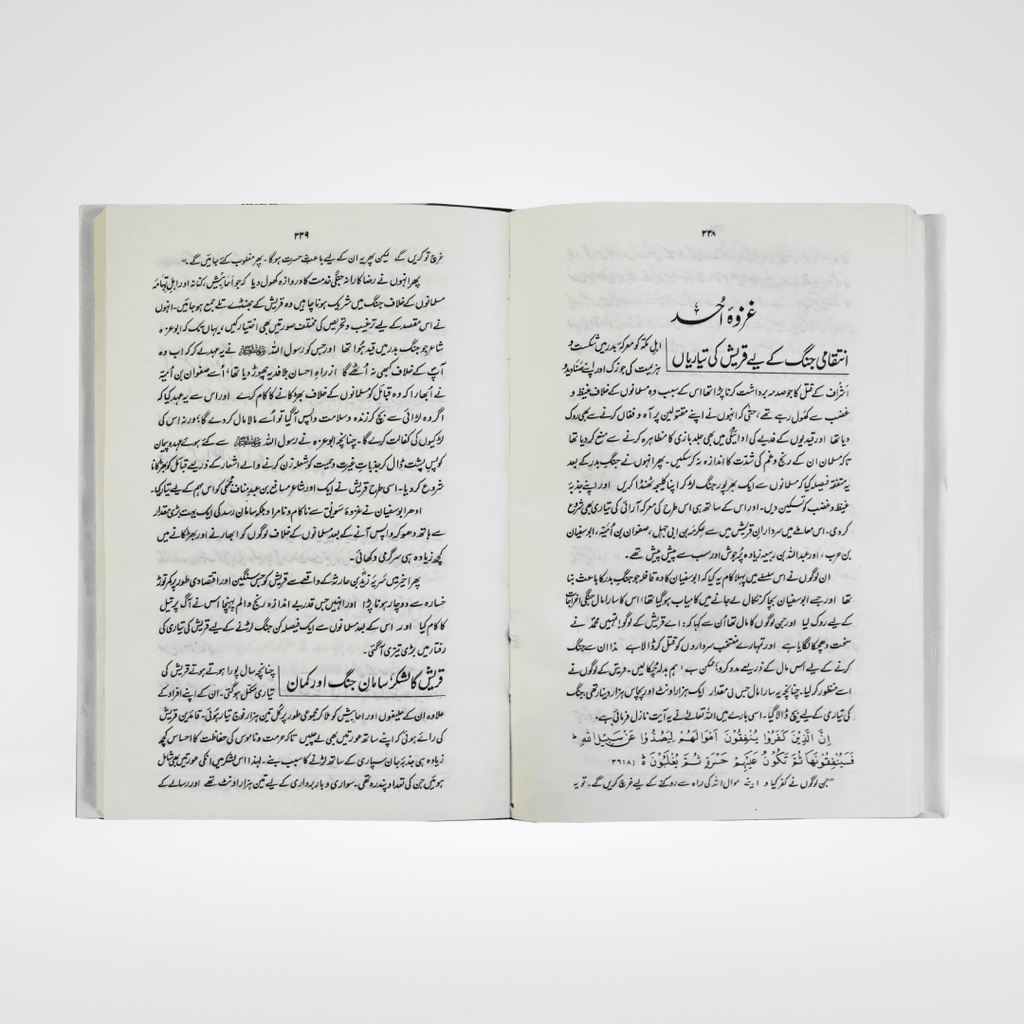 ۳۳۸
غزوۂ اُحد
انتقامی جنگ کے لیے قریش کی تیاریاں
اہلِ مکّہ کو معرکۂ بدر میں شکست و
ہزیمت کی جو زک اور اپنے صنادید و
اشراف کے قتل کا جو صدمہ برداشت کرنا پڑا تھا اس کے سبب وہ مسلمانوں کے خلاف غیظ و
غضب سے کھول رہے تھے، حتیٰ کہ انہوں نے اپنے مقتولین پر آہ و فغاں کرنے سے بھی روک
دیا تھا اور قیدیوں کے فدیے کی ادائیگی میں بھی جلد بازی کا مظاہرہ کرنے سے منع کر دیا تھا
تاکہ مسلمان ان کے رنج و غم کی شدّت کا اندازہ نہ کر سکیں۔ پھر انہوں نے جنگِ بدر کے بعد
یہ متفقہ فیصلہ کیا کہ مسلمانوں سے ایک بھرپور جنگ لڑ کر اپنا کلیجہ ٹھنڈا کریں اور اپنے جذبۂ
غیظ و غضب کو تسکین دیں۔ اور اس کے ساتھ ہی اس طرح کی معرکہ آرائی کی تیاری بھی شروع
کر دی۔ اس معاملے میں سردارانِ قریش میں سے عکرمہ بن ابی جہل، صفوان بن اُمیّہ، ابوسفیان
بن حرب، اور عبداللہ بن ربیعہ زیادہ پُرجوش اور سب سے پیش پیش تھے۔
ان لوگوں نے اس سلسلے میں پہلا کام یہ کیا کہ ابوسفیان کا وہ قافلہ جو جنگِ بدر کا باعث بنا
تھا اور جسے ابوسفیان بچا کر نکال لے جانے میں کامیاب ہو گیا تھا، اس کا سارا مال جنگی اخراجات
کے لیے روک لیا اور جن لوگوں کا مال تھا اُن سے کہا کہ: اے قریش کے لوگو! تمہیں محمّد نے
سخت دھچکا لگایا ہے اور تمہارے منتخب سرداروں کو قتل کر ڈالا ہے لہٰذا ان سے جنگ
کرنے کے لیے اس مال کے ذریعے مدد کرو، ممکن ہے ہم بدلہ چکالیں۔ قریش کے لوگوں نے
اسے منظور کر لیا۔ چنانچہ یہ سارا مال جس کی مقدار ایک ہزار اونٹ اور پچاس ہزار دینار تھی، جنگ
کی تیاری کے لیے بیچ ڈالا گیا۔ اسی بارے میں اللہ تعالےٰ نے یہ آیت نازل فرمائی ہے۔
اِنَّ الَّذِيْنَ كَفَرُوْا يُنْفِقُوْنَ اَمْوَالَهُمْ لِيَصُدُّوْا عَنْ سَبِيْلِ اللّٰهِ ط
فَسَيُنْفِقُوْنَهَا ثُمَّ تَكُوْنُ عَلَيْهِمْ حَسْرَةً ثُمَّ يُغْلَبُوْنَ ۵ (۳۶:۸)
”جن لوگوں نے کفر کیا وہ اپنے اموال اللہ کی راہ سے روکنے کے لیے خرچ کریں گے۔ تو یہ
۳۳۹
خرچ تو کریں گے لیکن پھر یہ ان کے لیے باعثِ حسرت ہوگا۔ پھر مغلوب کئے جائیں گے۔“
پھر انہوں نے رضاکارانہ جنگی خدمت کا دروازہ کھول دیا کہ جو اَحابیش، کنانہ اور اہلِ تہامہ
مسلمانوں کے خلاف جنگ میں شریک ہونا چاہیں وہ قریش کے جھنڈے تلے جمع ہو جائیں۔ انہوں
نے اس مقصد کے لیے ترغیب و تحریص کی مختلف صورتیں بھی اختیار کیں، یہاں تک کہ ابوعزہ
شاعر جو جنگِ بدر میں قید ہوا تھا اور جس کو رسول اللہ ﷺ نے یہ عہد لے کر کہ اب وہ
آپؐ کے خلاف کبھی نہ اُٹھے گا ازراہِ احسان بلا فدیہ چھوڑ دیا تھا، اُسے صفوان بن اُمیّہ
نے اُبھارا کہ وہ قبائل کو مسلمانوں کے خلاف بھڑکانے کا کام کرے اور اس سے یہ عہد کیا کہ
اگر وہ لڑائی سے بچ کر زندہ و سلامت واپس آگیا تو اُسے مالا مال کر دے گا؛ ورنہ اس کی
لڑکیوں کی کفالت کرے گا۔ چنانچہ ابوعزہ نے رسول اللہ ﷺ سے کئے ہوئے عہد و پیمان
کو پسِ پشت ڈال کر جذباتِ غیرت و حمیت کو شعلہ زن کرنے والے اشعار کے ذریعے قبائل کو بھڑکانا
شروع کر دیا۔ اسی طرح قریش نے ایک اور شاعر مسافع بن عبد مناف جُمحی کو اس مہم کے لیے تیار کیا۔
ادھر ابوسفیان نے غزوۂ سَویق سے ناکام و نامراد بلکہ سامانِ رسد کی ایک بہت بڑی مقدار
سے ہاتھ دھو کر واپس آنے کے بعد مسلمانوں کے خلاف لوگوں کو ابھارنے اور بھڑکانے میں
کچھ زیادہ ہی سرگرمی دکھائی۔
پھر اخیر میں سَریّۂ زید بن حارثہ کے واقعے سے قریش کو جس سنگین اور اقتصادی طور پر کمر توڑ
خسارہ سے دوچار ہونا پڑا اور انہیں جس قدر بے اندازہ رنج و الم پہنچا اُس نے آگ پر تیل
کا کام کیا اور اس کے بعد مسلمانوں سے ایک فیصلہ کن جنگ لڑنے کے لیے قریش کی تیاری کی
رفتار میں بڑی تیزی آگئی۔
قریش کا لشکر، سامانِ جنگ اور کمان
چنانچہ سال پورا ہوتے ہوتے قریش کی
تیاری مکمل ہو گئی۔ ان کے اپنے افراد کے
علاوہ ان کے حلیفوں اور احابیش کو ملا کر مجموعی طور پر کُل تین ہزار فوج تیار ہوئی۔ قائدینِ قریش
کی رائے ہوئی کہ اپنے ساتھ عورتیں بھی لے چلیں تاکہ حرمت و ناموس کی حفاظت کا احساس کچھ
زیادہ ہی جذبۂ جان سپاری کے ساتھ لڑنے کا سبب بنے۔ لہٰذا اس لشکر میں انکی عورتیں بھی شامل
ہوئیں جن کی تعداد پندرہ تھی۔ سواری و بار برداری کے لیے تین ہزار اونٹ تھے اور رسالے کے